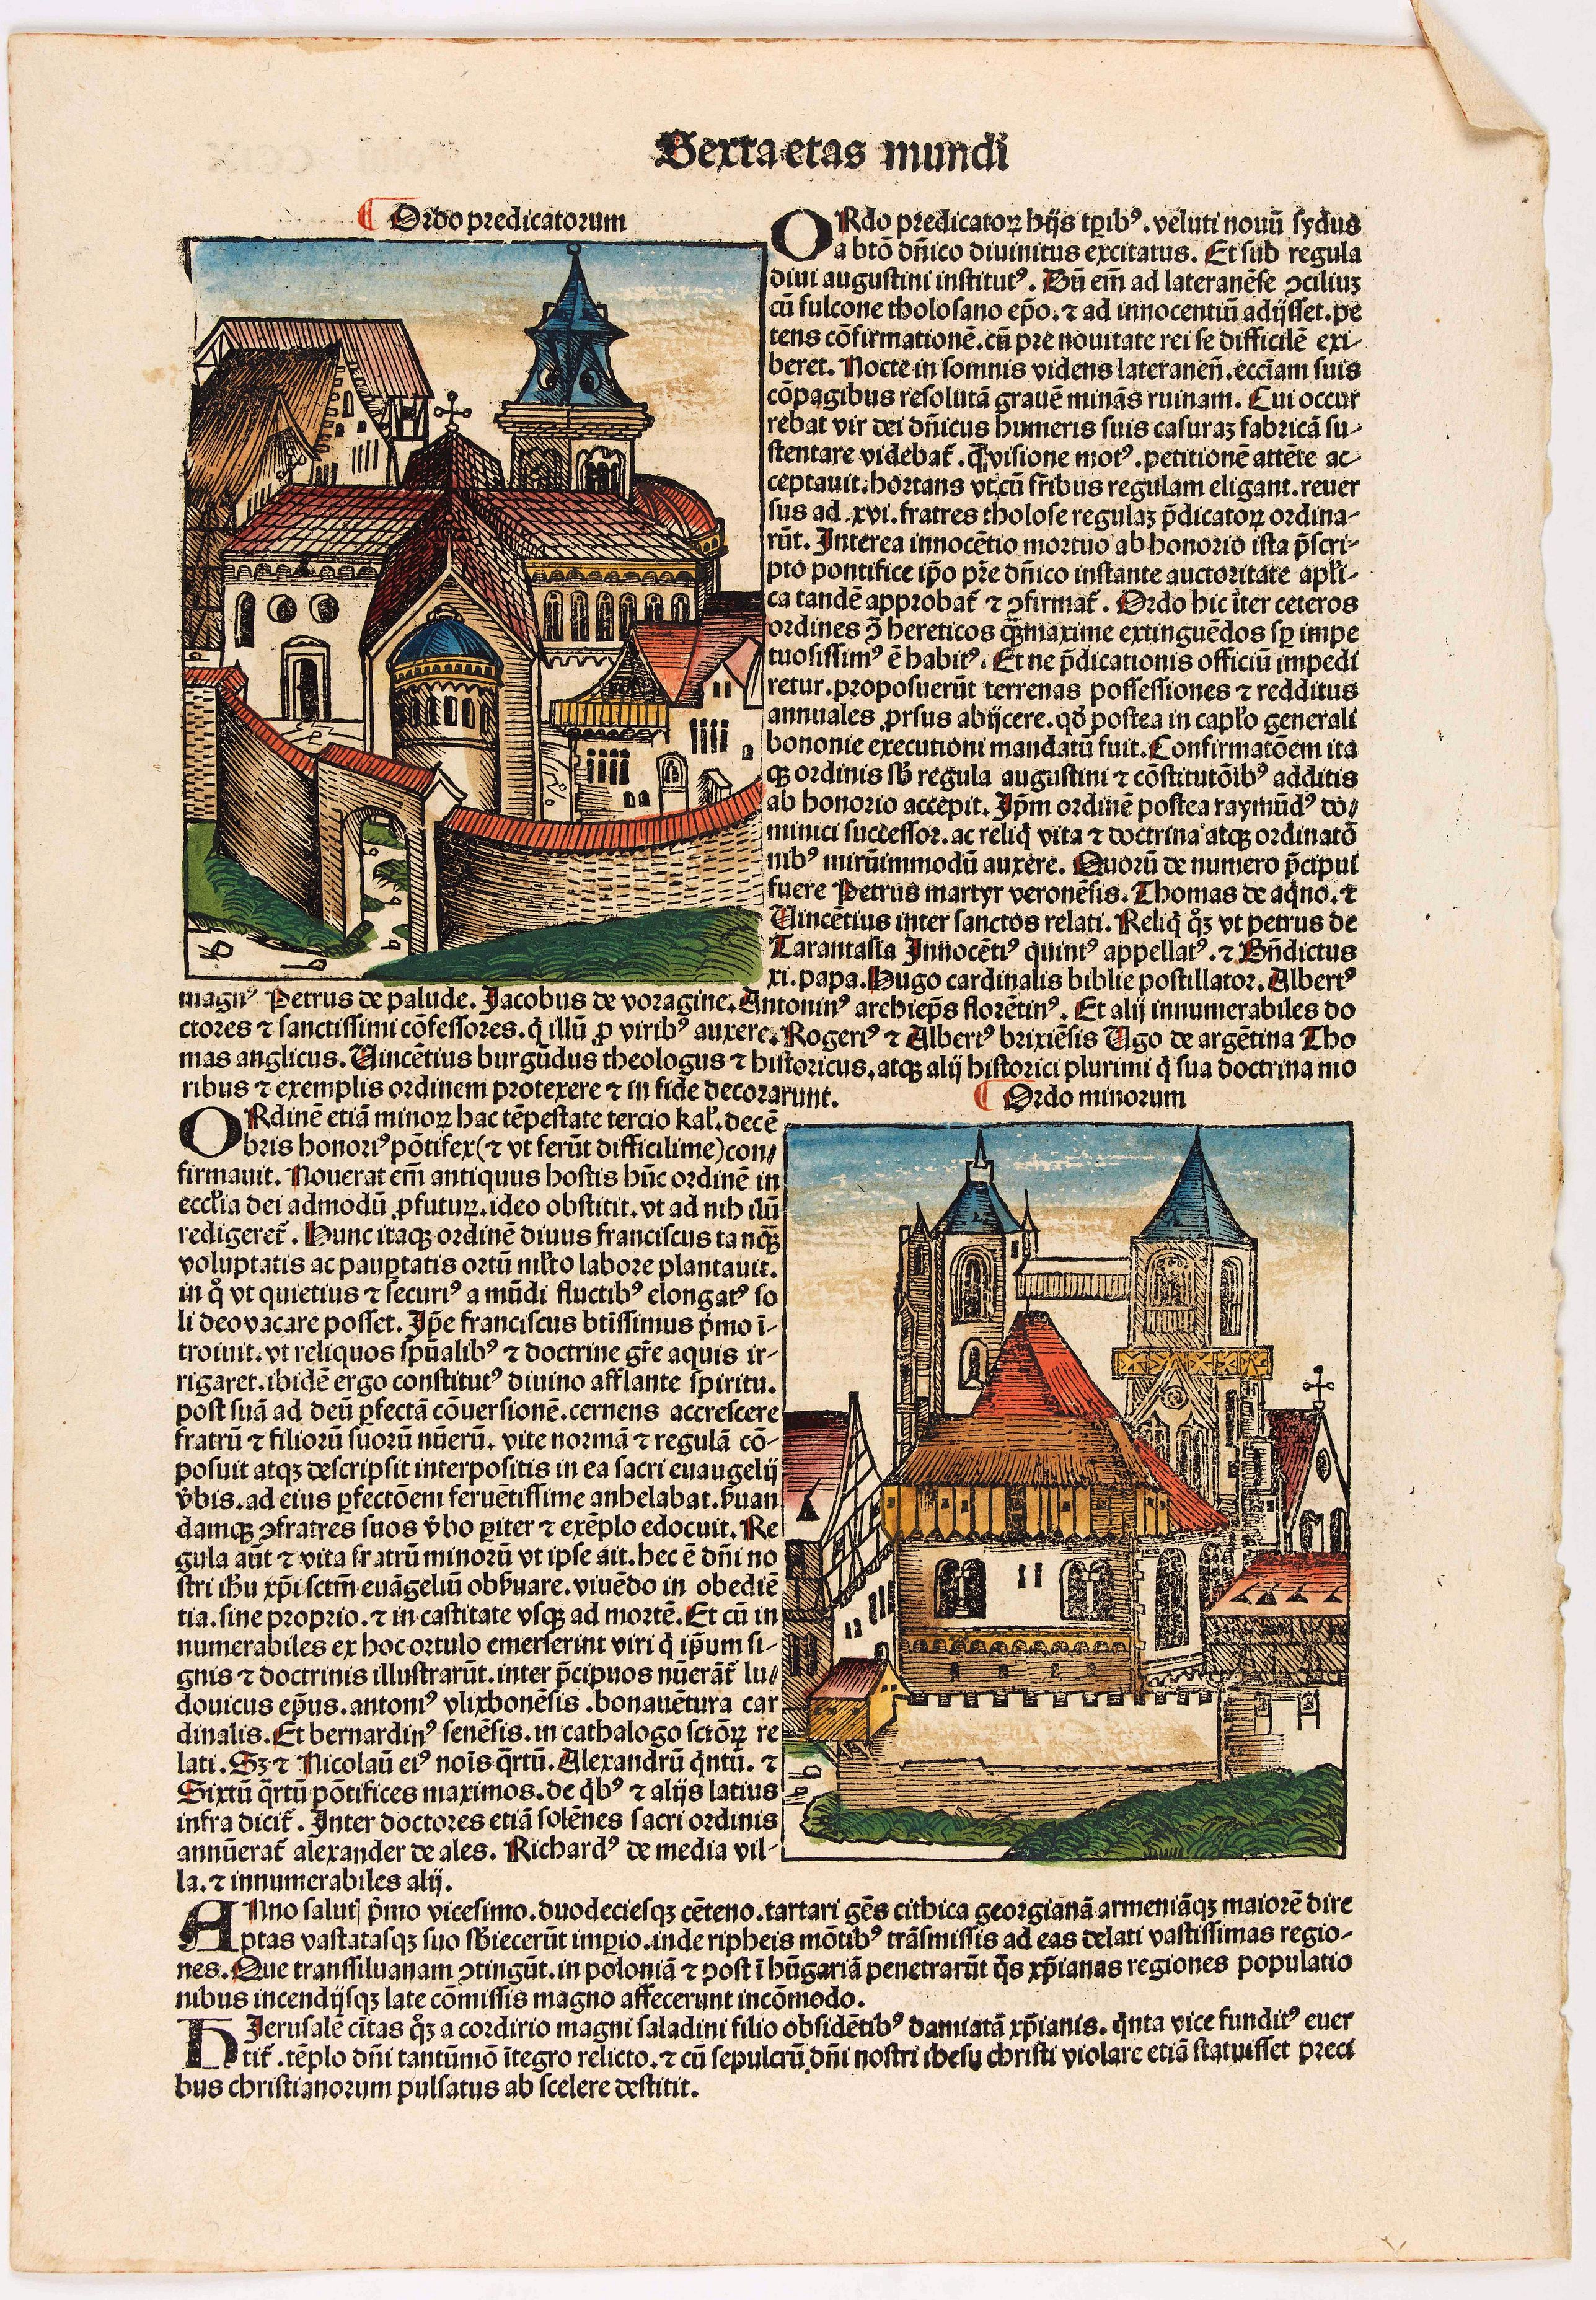 Sexta etas mundi
Ordo predicatorum
ORdo predicatoꝝ hijs tꝑibꝰ. veluti nouū sydus
a btō dn̄ico diuinitus excitatus. Et sub regula
diui augustini institutꝰ. Dū em̄ ad lateranēse ↄciliuꝫ
cū fulcone tholosano ep̄o. ⁊ ad innocentiū adijsset. pe
tens cōfirmationē. cū pre nouitate rei se difficilē exi-
beret. Nocte in somnis videns lateraneñ. eccīam suis
cōpagibus resolutā grauē minās ruinam. Cui occur
rebat vir dei dn̄icus humeris suis casuraꝫ fabricā su-
stentare videbat̄. q̄ visione motꝰ. petitionē attēte ac-
ceptauit. hortans vt cū fr̄ibus regulam eligant. reuer
sus ad .xvi. fratres tholose regulaꝫ p̄dicatoꝝ ordina-
rūt. Interea innocētio mortuo ab honorio ista p̄scri-
pto pontifice ip̄o pr̄e dn̄ico instante auctoritate apl̄i-
ca tandē approbat̄ ⁊ ↄfirmat̄. Ordo hic īter ceteros
ordines ↄ̄ hereticos q̄ꝫmaxime extinguēdos sꝑ impe
tuosissimꝰ ē habitꝰ. Et ne p̄dicationis officiū impedi
retur. proposuerūt terrenas possessiones ⁊ redditus
annuales ꝓrsus abijcere. qđ postea in capl̄o generali
bononie executioni mandatū fuit. Confirmatōem ita
qꝫ ordinis sb̄ regula augustini ⁊ cōstitutōibꝰ additis
ab honorio accepit. Ip̄m ordinē postea raymūdꝰ do/
minici successor. ac reliq̄ vita ⁊ doctrina atqꝫ ordinatō
nibꝰ mirūimmodū auxere. Quorū de numero p̄cipui
fuere Petrus martyr veronēsis. Thomas de aq̄no. ⁊
Vincētius inter sanctos relati. Reliq̄ q̊ꝫ vt petrus de
Tarantasia Innocētiꝰ quintꝰ appellatꝰ. ⁊ Bn̄dictus
xi. papa. Hugo cardinalis biblie postillator. Albertꝰ
magnꝰ Petrus de palude. Jacobus de voragine. Antoninꝰ archiep̄s florētinꝰ. Et alij innumerabiles do
ctores ⁊ sanctissimi cōfessores. q̄ illū ꝓ viribꝰ auxere. Rogeriꝰ ⁊ Albertꝰ brixiēsis Ugo de argētina Tho
mas anglicus. Vincētius burgūdus theologus ⁊ historicus, atqꝫ alij historici plurimi q̄ sua doctrina mo
ribus ⁊ exemplis ordinem protexere ⁊ in fide decorarunt.
Ordo minorum
ORdinē etiā minoꝝ hac tēpestate tercio kal̄. decē
bris honoriꝰ pōtifex (⁊ vt ferūt difficilime) con/
firmauit. Nouerat em̄ antiquus hostis hūc ordinē in
eccl̄ia dei admodū ꝓfuturꝝ. ideo obstitit. vt ad nihilū
redigeret̄. Hunc itaqꝫ ordinē diuus franciscus tanq̄ꝫ
voluptatis ac pauꝑtatis ortū ml̄to labore plantauit.
in q̊ vt quietius ⁊ securiꝰ a mūdi fluctibꝰ elongatꝰ so
li deo vacare posset. Ip̄e franciscus btīssimus p̄mo ī-
troiuit. vt reliquos sp̄ūalibꝰ ⁊ doctrine gr̄e aquis ir-
rigaret. ibidē ergo constitutꝰ diuino afflante spiritu.
post suā ad deū ꝑfectā cōuersionē. cernens accrescere
fratrū ⁊ filiorū suorū nūerū. vite normā ⁊ regulā cō-
posuit atqꝫ descripsit interpositis in ea sacri euaugelij
v̄bis. ad eius ꝑfectōem feruētissime anhelabat. ẜuan
damqꝫ ↄfratres suos v̄bo ꝑiter ⁊ exēplo edocuit. Re
gula aūt ⁊ vita fratrū minorū vt ipse ait. hec ē dn̄i no
stri ih̄u xp̄i sctm̄ euāgeliū obẜuare. viuēdo in obediē
tia. sine proprio. ⁊ in castitate vsqꝫ ad mortē. Et cū in
numerabiles ex hoc ortulo emerserint viri q̄ ip̄um si-
gnis ⁊ doctrinis illustrarūt. inter p̄cipuos nūerāt̄ lu/
douicus ep̄us. antoniꝰ vlixbonēsis. bonauētura car
dinalis. Et bernardinꝰ senēsis. in cathalogo sctōꝝ re
lati. Sꝫ ⁊ Nicolaū eiꝰ noīs q̄rtū. Alexandrū q̄ntū. ⁊
Sixtū q̄rtū pōtifices maximos. de q̄bꝰ ⁊ alijs latius
infra dicit̄. Inter doctores etiā solēnes sacri ordinis
annūerat̄ alexander de ales. Richardꝰ de media vil-
la. ⁊ innumerabiles alij.
ANno salutꝭ p̄mo vicesimo. duodeciesqꝫ cēteno. tartari gēs cithica georgianā armeniāqꝫ maiorē dire
ptas vastatasqꝫ suo sb̄iecerūt imꝑio. inde ripheis mōtibꝰ trāsmissis ad eas delati vastissimas regio-
nes. Que transsiluanam ↄtingūt. in poloniā ⁊ post ī hūgariā penetrarūt q̄s xp̄ianas regiones populatio
nibus incendijsqꝫ late cōmissis magno affecerunt incōmodo.
HIerusalē ciītas q̊ꝫ a cordirio magni saladini filio obsidētibꝰ damiatā xp̄ianis. q̄nta vice funditꝰ euer
tit̄. tēplo dn̄i tantūmō ītegro relicto. ⁊ cū sepulcrū dn̄i nostri ihesu christi violare etiā statuisset preci
bus christianorum pulsatus ab scelere destitit.